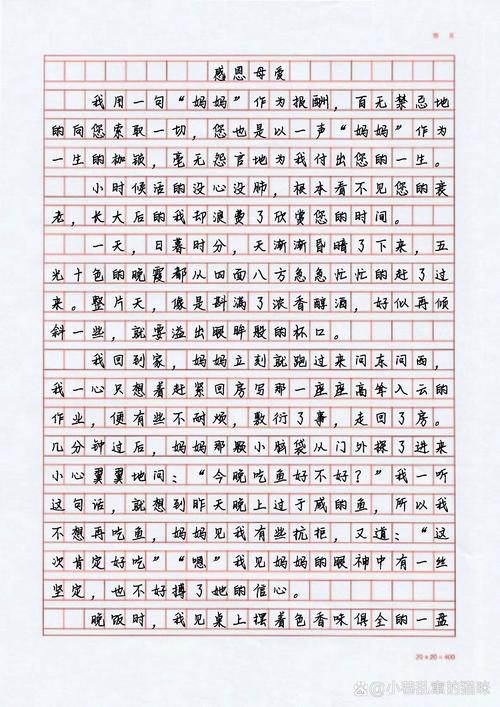 感恩母爱
我用一句“妈妈”作为报酬，百无禁忌地
的向您索取一切，您也是以一声“妈妈”作为
一生的枷锁，毫无怨言地为我付出您的一生。
小时候活的没心没肺，根本看不见您的衰
老，长大后的我却浪费了欣赏您的时间。
一天，日暮时分，天渐渐昏暗了下来，五
光十色的晚霞都从四面八方急急忙忙的赶了过
来。整片天，像是斟满了浓香醇酒，好似再倾
斜一些，就要溢出眼眸般的杯口。
我回到家，妈妈立刻就跑过来问东问西，
我一心只想着赶紧回房写那一座座高耸入云的
作业，便有些不耐烦，敷衍了事，走回了房。
几分钟过后，妈妈那颗小脑袋从门外探了进来
小心翼翼地问：“今晚吃鱼好不好？”我一听
这句话，就想到昨天晚上过于咸的鱼，所以我
不想再吃鱼，妈妈见我有些抗拒，又道：“这
次肯定好吃”“嗯”我见妈妈的眼神中有一丝
坚定，也不好搏了她的信心。
晚饭时，我见桌上摆着色香味俱全的一盘
20×20=400
小巷乱窜的猫咪